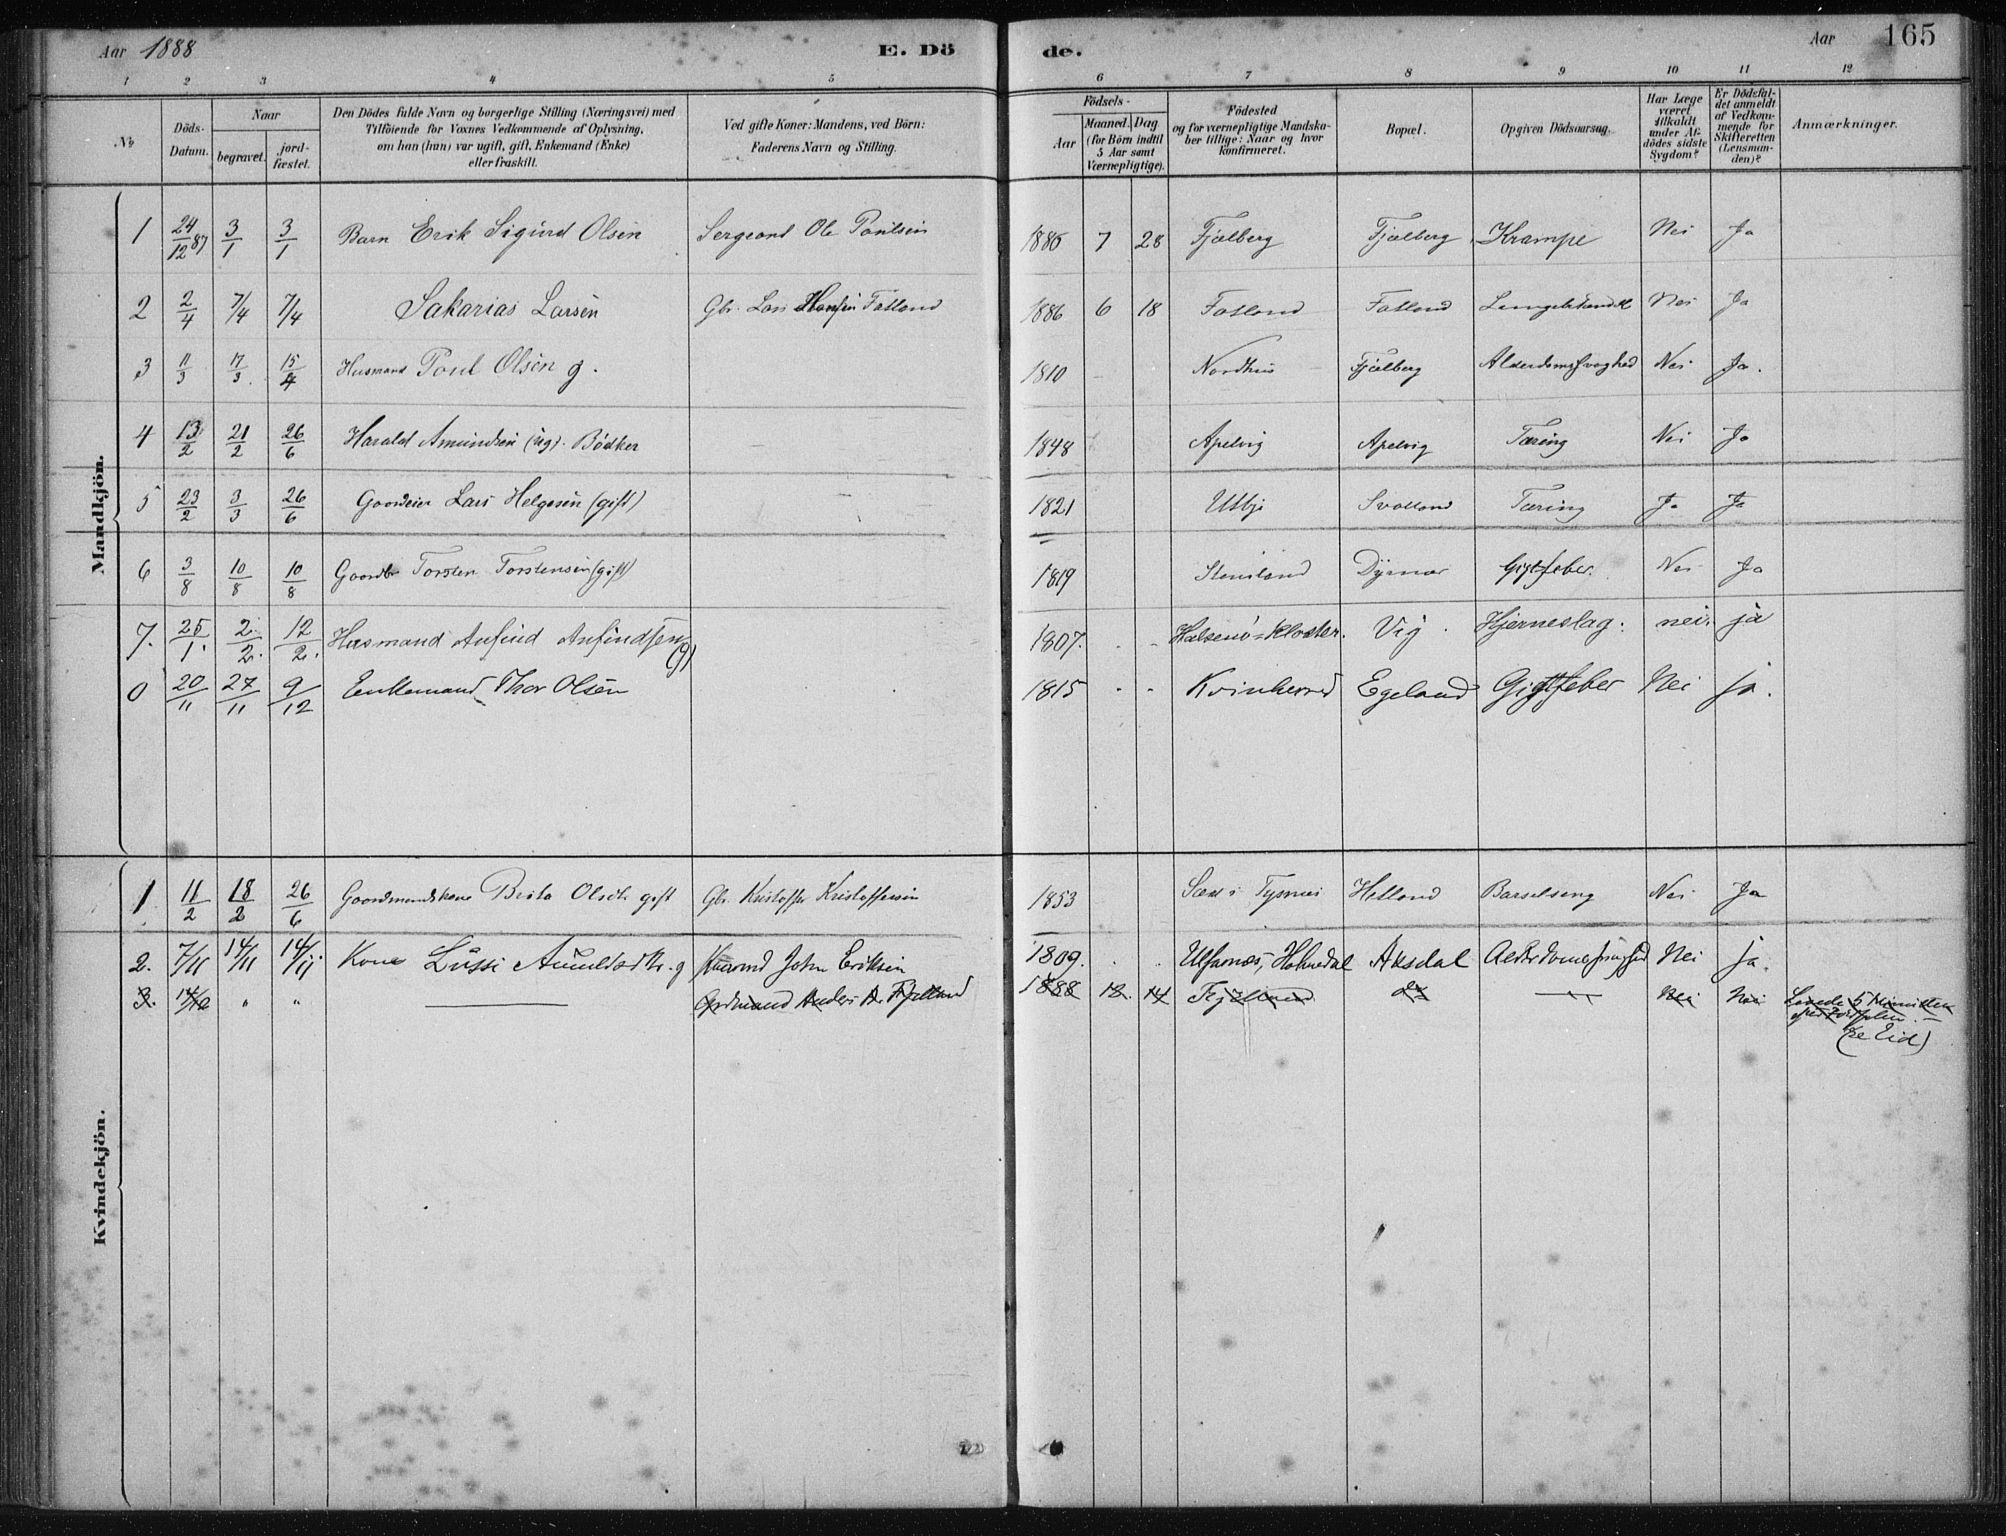 Aar 1888
E. Dö
de.
Aar 165
1 2 3 4 5 6 7 8 9 10 11 12
№
Döds-
Datum.
Naar
begravet.
jord-
fæstet.
Den Dödes fulde Navn og borgerlige Stilling (Næringsvei) med
Tilföiende for Voxnes Vedkommende af Oplysning,
om han (hun) var ugift, gift, Enkemand (Enke)
eller fraskilt.
Ved gifte Koner: Mandens, ved Börn:
Faderens Navn og Stilling.
Födsels-
Aar
Maaned. Dag
(for Börn indtil
5 Aar samt
Værnepligtige).
Födested
og for værnepligtige Mandska-
ber tillige: Naar og hvor
konfirmeret.
Bopæl.
Opgiven Dödsaarsag.
Har Læge
været
tilkaldt
under Af-
dödes sidste
Sygdom?
Er Dödsfal-
det anmeldt
af Vedkom-
mende for
Skifteretten
(Lensman-
den)?
Anmærkninger.
Mandkjön.
1 24/12 87 3/1 3/1 Barn Erik Sigurd Olsen Sergeant Ole Poulsen 1886 7 28 Fjælberg Fjælberg Krampe Nei Ja
2 2/4 7/4 7/4 Sakarias Larsen Gbr. Lars Hansen Fatland 1886 6 18 Fatland Fatland Nei Ja
3 11/3 17/3 15/4 Husmand Poul Olsen g. 1810 Nordhus Fjælberg Alderdomssvaghed Nei Ja.
4 13/2 21/2 26/6 Harald Amundsen (ug). Bødker 1848 Apelvig Apelvig Tæring Nei Ja
5 23/2 3/3 26/6 Gaardeier Lars Helgesen (gift) 1821 Utbjo Svalland Tæring Ja Ja
6 3/8 10/8 10/8 Gaardbr Torsten Torstensen (gift) 1819 Stensland Gigtfeber. Nei Ja
7. 25/1. 2./2. 12/2. Husmand Anfind Anfindsen (g) 1807. Halsenø-Kloster. Vig. Hjerneslag. nei. ja
0 20/11 27/11 9/12 Enkemand Thor Olsen 1815 Kvinherred Egeland Gigtfeber Nei ja.
Kvindekjön.
1 11/2 18/2 26/6 Gaardmandskone Brita Olsdtr gift Gbr. Kristoffer Kristoffersen 1853 Sæs i Tysnes Hetland Barselseng Nei Ja
2. 7/11 14/11 14/11. Kone Lussi Amundsdtr. g Husmd John Eriksen 1809. Ulfanæs, Holmedal Aksdal Nei ja.
3. 14/12 " " Grdmand Anders A. Fjelland 1888 12. 14 Fjælland do Nei Nei Levede 5 Minutter
(se Eid)